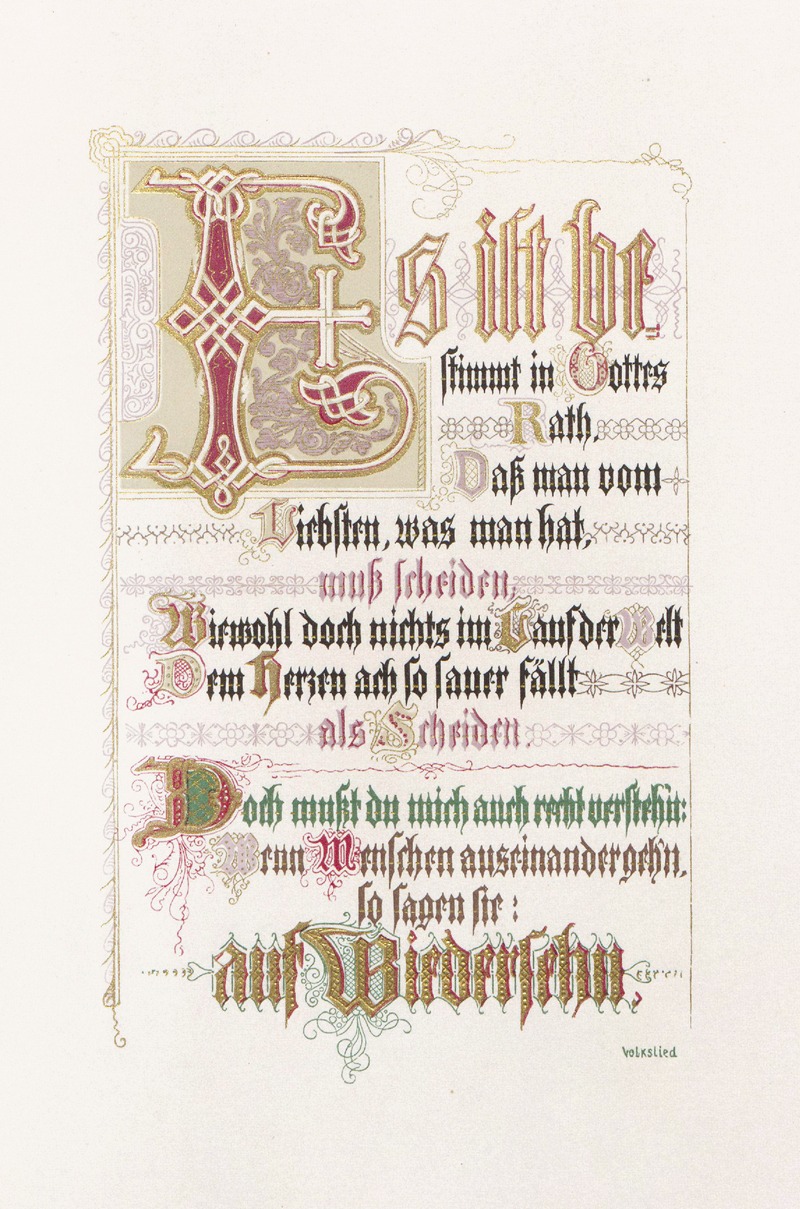 Es ist be-
stimmt in Gottes
Rath,
Daß man vom
Liebsten, was man hat,
muß scheiden,
Wiewohl doch nichts im Lauf der Welt
Dem Herzen ach so sauer fällt
als Scheiden.
Doch mußt du mich auch recht verstehn:
Wenn Menschen auseinandergehn,
so sagen sie:
auf Wiedersehn,
Volkslied